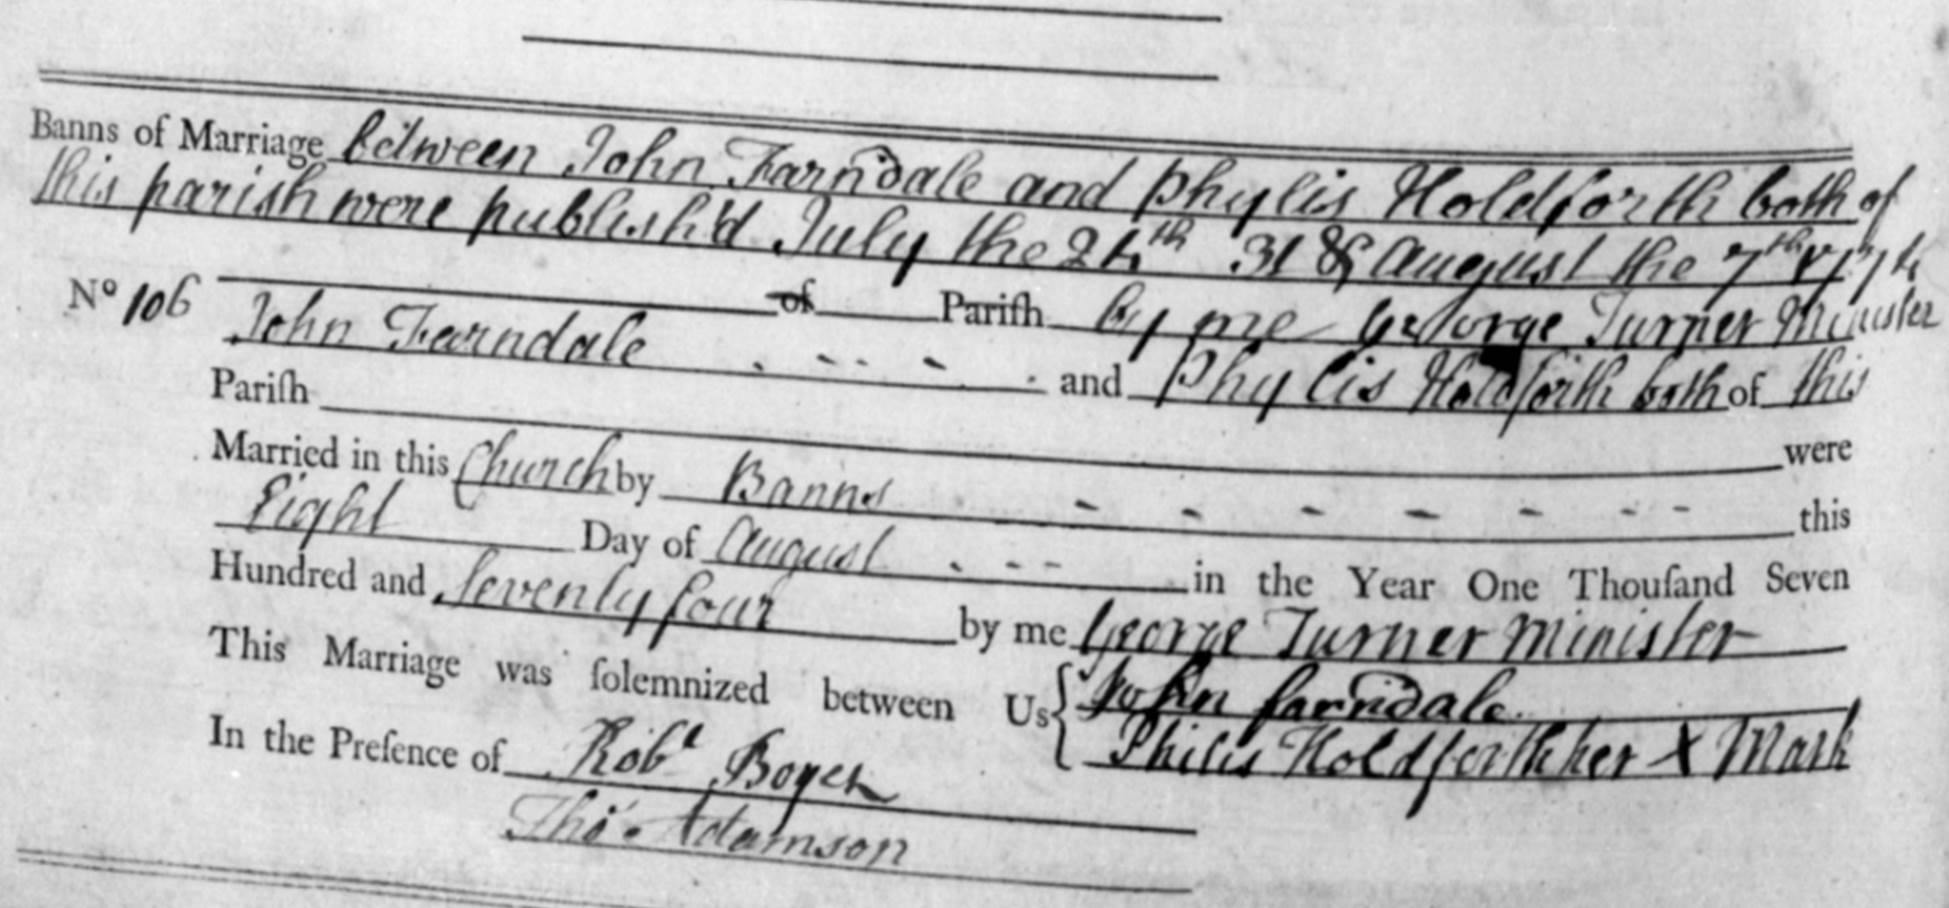 Banns of Marriage between John Farndale and Phylis Holdforth both of
this parish were publish'd July the 24th 31 & August the 7th 1774
No 106 of Parish by me George Turner Minister
John Farndale and Phylis Holdforth both of this
Parish were
Married in this Church by Banns this
Eight Day of August in the Year One Thousand Seven
Hundred and Seventy four by me George Turner Minister
This Marriage was solemnized between Us John farndale
Philis Holdforth her X Mark
In the Presence of Robt Boyes
Tho. Adamson